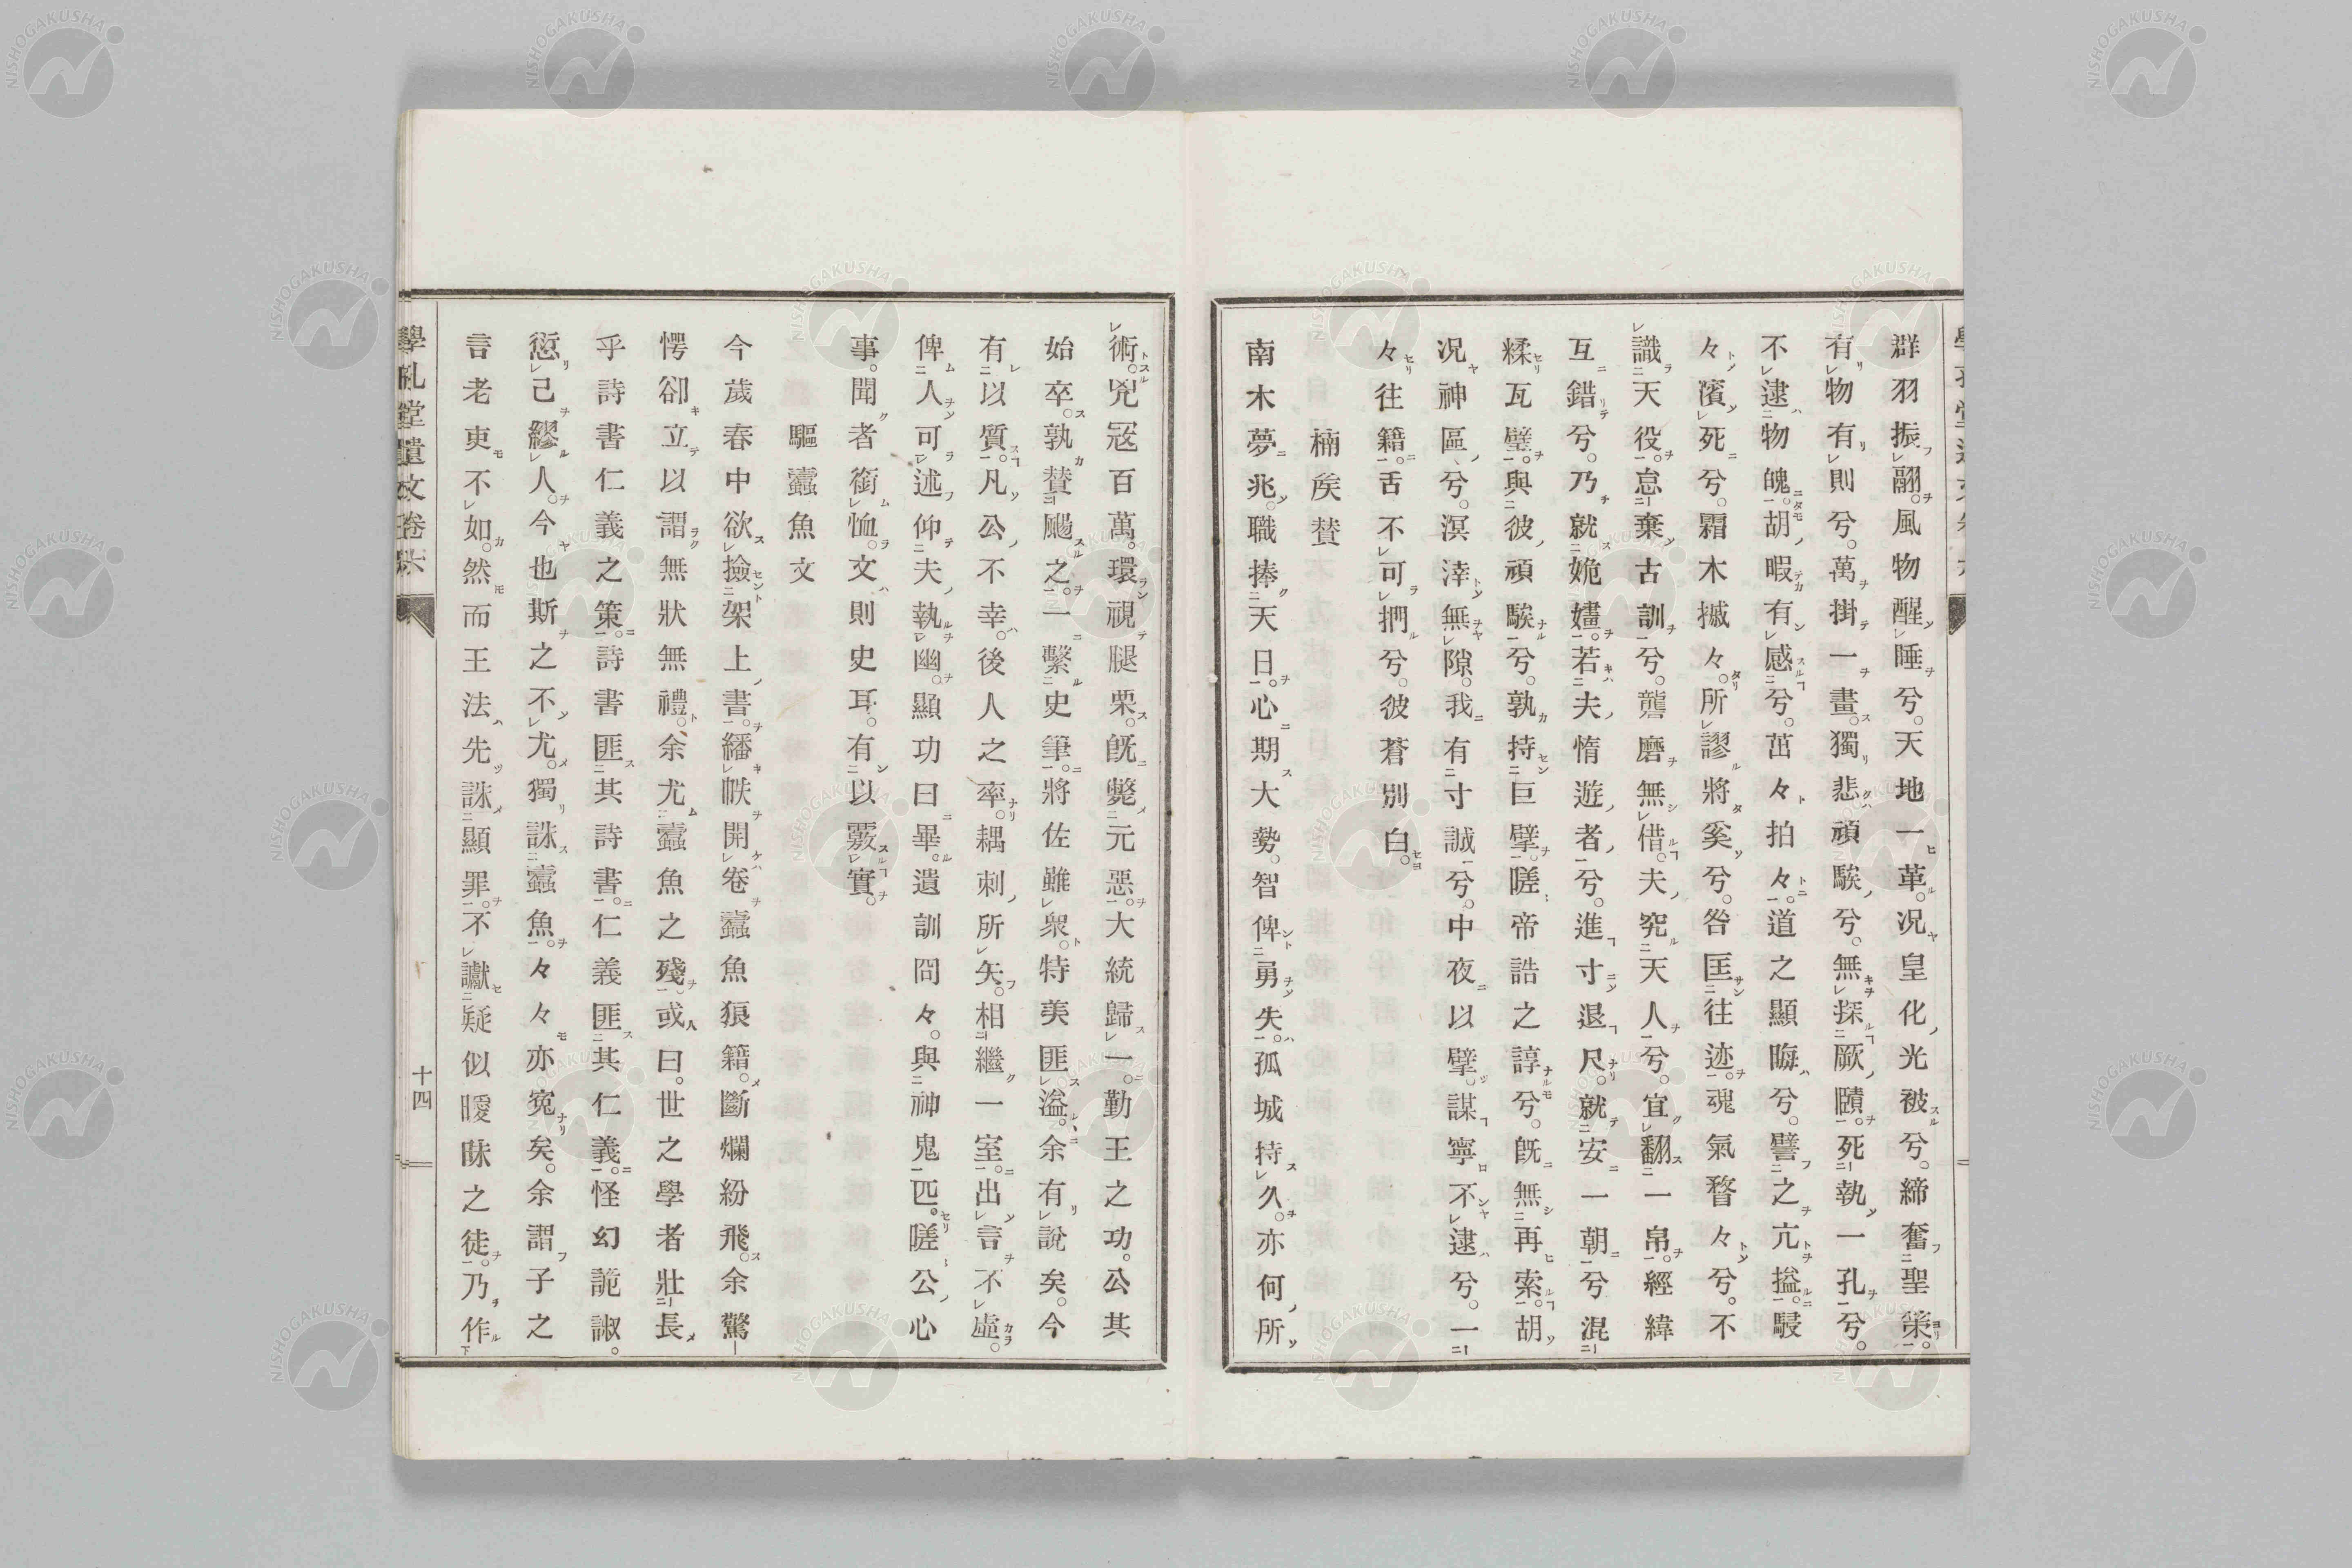 群羽振翮。風物醒睡兮。天地一革。況皇化光被兮。締奮聖策。
有物有則兮。萬掛一畫。獨悲頑騃兮。無探厥賾。死執一孔兮。
不逮物魄。胡暇有感兮。茁々拍々。道之顯晦兮。譬之亢搤。駸
々濱死兮。霜木摵々。所謬將奚兮。咎匡往迹。魂氣瞀々兮。不
識天役。怠棄古訓兮。礱磨無借。夫究天人兮。宜翻一帛。經緯
互錯兮。乃就娩嫿。若夫惰遊者兮。進寸退尺。就安一朝兮混
糅瓦璧。與彼頑騃兮。孰持巨擘。嗟帝誥之諄兮。既無再索。胡
況神區兮。溟涬無隙。我有寸誠兮。中夜以擘。謀寧不逮兮。一
々往籍。舌不可捫兮。彼蒼別白。
楠矦贊
南木夢兆。職捧天日。心期大勢。智俾勇失。孤城持久。亦何所
術。兇冦百萬。環視腿栗。既斃元惡。大統歸一。勤王之功。公其
始卒。孰賛颺之。一繫史筆。將佐雖衆。特美匪溢。余有説矣。今
有以質。凡公不幸。後人之率。耦刺所矢。相繼一室。出言不虛。
俾人可述。仰夫執幽。顯功曰畢。遺訓冏々。與神鬼匹。嗟公心
事。聞者銜恤。文則史耳。有以覈實。
驅蠧魚文
今歲春中欲撿架上書。繙帙開卷蠧魚狼籍。斷爛紛飛。余驚
愕卻立以謂無狀無禮。余尤蠧魚之殘。或曰。世之學者壯長
乎詩書仁義之策。詩書匪其詩書。仁義匪其仁義。怪幻詭諔。
愆己繆人。今也斯之不尤。獨誅蠧魚。々々亦寃矣。余謂子之
言老吏不如。然而王法先誅顯罪。不讞疑似曖昧之徒。乃作
學孔堂遺文卷六
十四
NISHOGAKUSHA